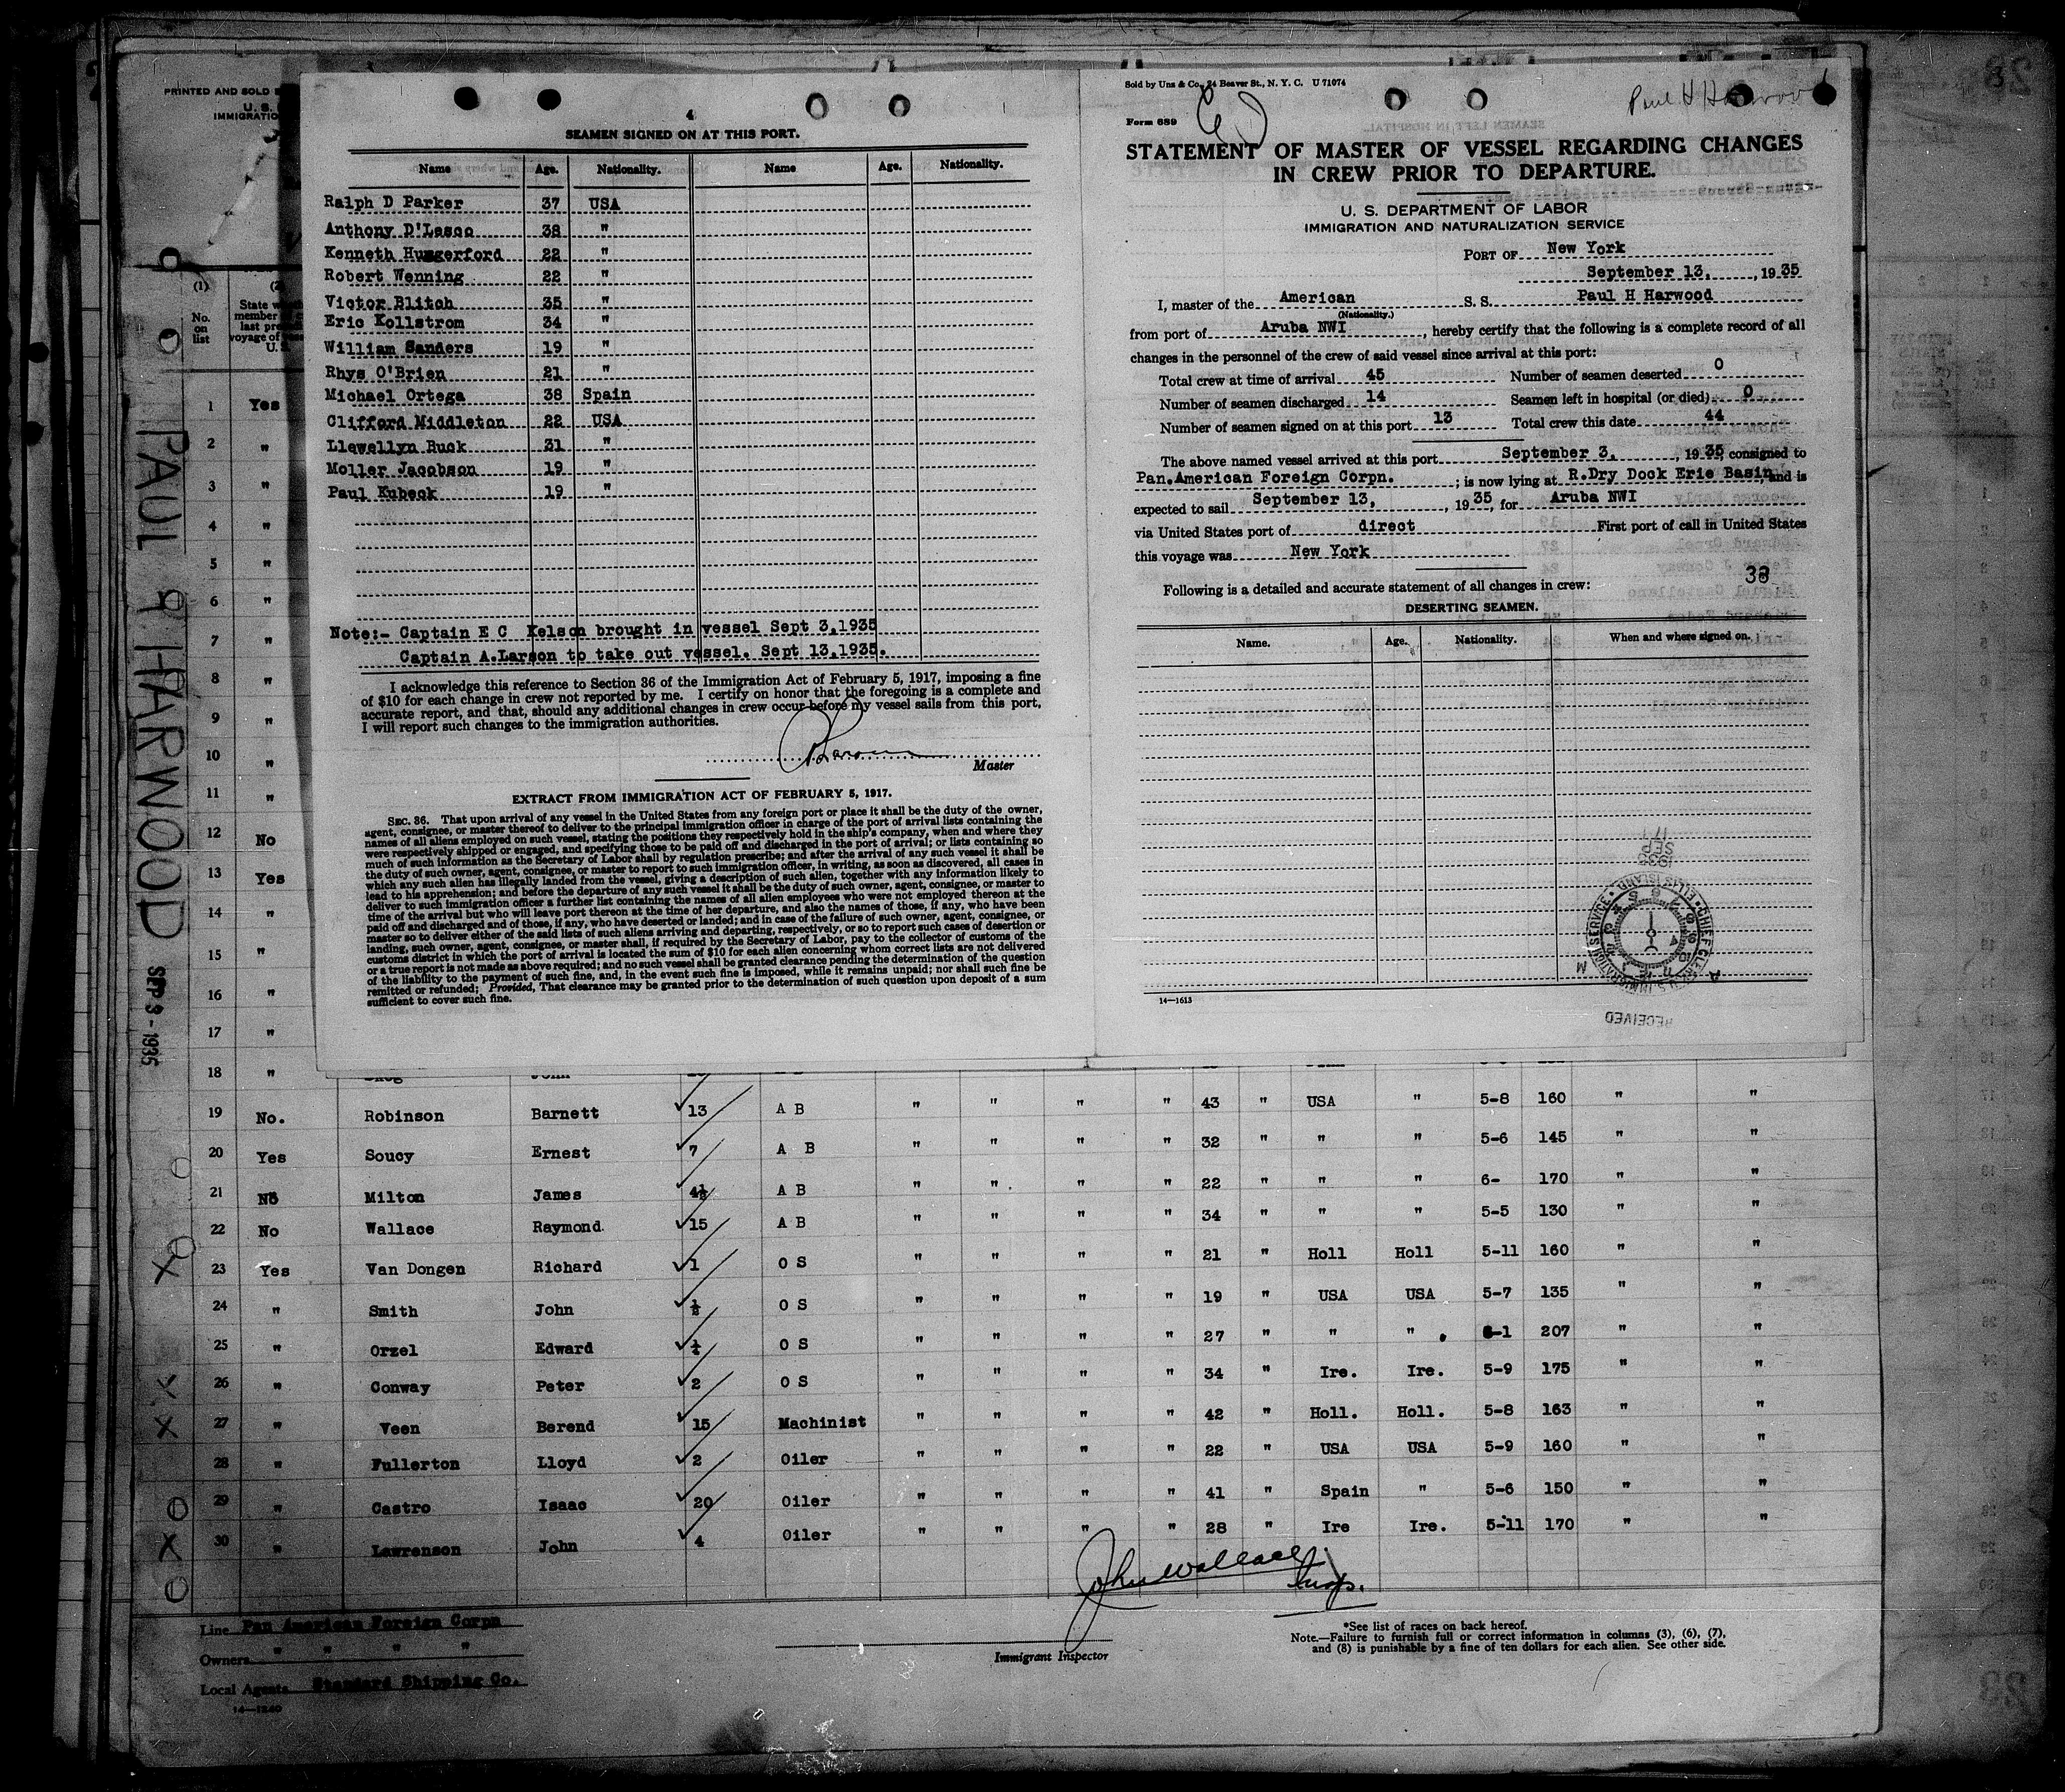 PRINTED AND SOLD
U. S.
IMMIGRATIO
4
SEAMEN SIGNED ON AT THIS PORT.
Name Age. Nationality. Name Age. Nationality.
Ralph D Parker 37 USA
Anthony D'Lasco 38 "
Kenneth Hungerford 22 "
Robert Wenning 22 "
Victor Blitch 35 "
Eric Kollstrom 34 "
William Sanders 19 "
Rhys O'Brien 21 "
Michael Ortega 38 Spain
Clifford Middleton 22 USA
Llewellyn Buck 31 "
Moller Jacobson 19 "
Paul Kubeck 19 "
Note:- Captain E C Kelson brought in vessel Sept 3.1935
Captain A.Larson to take out vessel. Sept 13.1935.
I acknowledge this reference to Section 36 of the Immigration Act of February 5, 1917, imposing a fine
of $10 for each change in crew not reported by me. I certify on honor that the foregoing is a complete and
accurate report, and that, should any additional changes in crew occur before my vessel sails from this port,
I will report such changes to the immigration authorities.
Master
EXTRACT FROM IMMIGRATION ACT OF FEBRUARY 5, 1917.
SEC. 36. That upon arrival of any vessel in the United States from any foreign port or place it shall be the duty of the owner,
agent, consignee, or master thereof to deliver to the principal immigration officer in charge of the port of arrival lists containing the
names of all aliens employed on such vessel, stating the positions they respectively hold in the ship's company, when and where they
were respectively shipped or engaged, and specifying those to be paid off and discharged in the port of arrival; or lists containing so
much of such information as the Secretary of Labor shall by regulation prescribe; and after the arrival of any such vessel it shall be
the duty of such owner, agent, consignee, or master to report to such immigration officer, in writing, as soon as discovered, all cases in
which any such alien has illegally landed from the vessel, giving a description of such alien, together with any information likely to
lead to his apprehension; and before the departure of any such vessel it shall be the duty of such owner, agent, consignee, or master to
deliver to such immigration officer a further list containing the names of all alien employees who were not employed thereon at the
time of the arrival but who will leave port thereon at the time of her departure, and also the names of those, if any, who have been
paid off and discharged and of those, if any, who have deserted or landed; and in case of the failure of such owner, agent, consignee, or
master so to deliver either of the said lists of such aliens arriving and departing, respectively, or so to report such cases of desertion or
landing, such owner, agent, consignee, or master shall, if required by the Secretary of Labor, pay to the collector of customs of the
customs district in which the port of arrival is located the sum of $10 for each alien concerning whom correct lists are not delivered
or a true report is not made as above required; and no such vessel shall be granted clearance pending the determination of the question
of the liability to the payment of such fine, and, in the event such fine is imposed, while it remains unpaid; nor shall such fine be
remitted or refunded; Provided, That clearance may be granted prior to the determination of such question upon deposit of a sum
sufficient to cover such fine.
Sold by Unz & Co., 24 Beaver St., N. Y. C. U 71074
Paul H Harwood
Form 689
STATEMENT OF MASTER OF VESSEL REGARDING CHANGES
IN CREW PRIOR TO DEPARTURE.
U. S. DEPARTMENT OF LABOR
IMMIGRATION AND NATURALIZATION SERVICE
PORT OF New York
September 13, , 1935
I, master of the American S. S. Paul H Harwood
(Nationality.)
from port of Aruba NWI , hereby certify that the following is a complete record of all
changes in the personnel of the crew of said vessel since arrival at this port:
Total crew at time of arrival 45 Number of seamen deserted 0
Number of seamen discharged 14 Seamen left in hospital (or died) 0
Number of seamen signed on at this port 13 Total crew this date 44
The above named vessel arrived at this port September 3, , 1935 consigned to
Pan.American Foreign Corpn. ; is now lying at R.Dry Dock Erie Basin, and is
expected to sail September 13, , 1935, for Aruba NWI
via United States port of direct First port of call in United States
this voyage was New York
38
Following is a detailed and accurate statement of all changes in crew:
DESERTING SEAMEN.
Name. Age. Nationality. When and where signed on.
1935
SEP 17
CHIEF CLERK ELLIS ISLAND
RECEIVED
14—1613
PAUL H HARWOOD SEP 3 - 1935
(1)
No.
on
list
State
member
last
voyage of
U.
1 Yes
2 "
3 "
4 "
5 "
6 "
7 "
8 "
9 "
10 "
11 "
12 No
13 Yes
14 "
15 "
16 "
17 "
18 "
19 No. Robinson Barnett 13 A B " " " " 43 " USA " 5-8 160 " "
20 Yes Soucy Ernest 7 A B " " " " 32 " " " 5-6 145 " "
21 No Milton James 4½ A B " " " " 22 " " " 6- 170 " "
22 No Wallace Raymond 15 A B " " " " 34 " " " 5-5 130 " "
X 23 Yes Van Dongen Richard 1 O S " " " " 21 " Holl Holl 5-11 160 " "
24 " Smith John ½ O S " " " " 19 " USA USA 5-7 135 " "
25 " Orzel Edward O S " " " " 27 " " " 6-1 207 " "
X 26 " Conway Peter 2 O S " " " " 34 " Ire. Ire. 5-9 175 " "
X 27 " Veen Berend 15 Machinist " " " " 42 " Holl. Holl. 5-8 163 " "
28 " Fullerton Lloyd 2 Oiler " " " " 22 " USA USA 5-9 160 " "
29 " Castro Isaac 20 Oiler " " " " 41 " Spain " 5-6 150 " "
X 30 " Lawrenson John 4 Oiler " " " " 28 " Ire Ire. 5-11 170 " "
John Wallace Insp.
Line Pan American Foreign Corpn
Owners " " " "
Local Agents Standard Shipping Co.
14—1240
Immigrant Inspector
*See list of races on back hereof.
Note.—Failure to furnish full or correct information in columns (3), (6), (7),
and (8) is punishable by a fine of ten dollars for each alien. See other side.